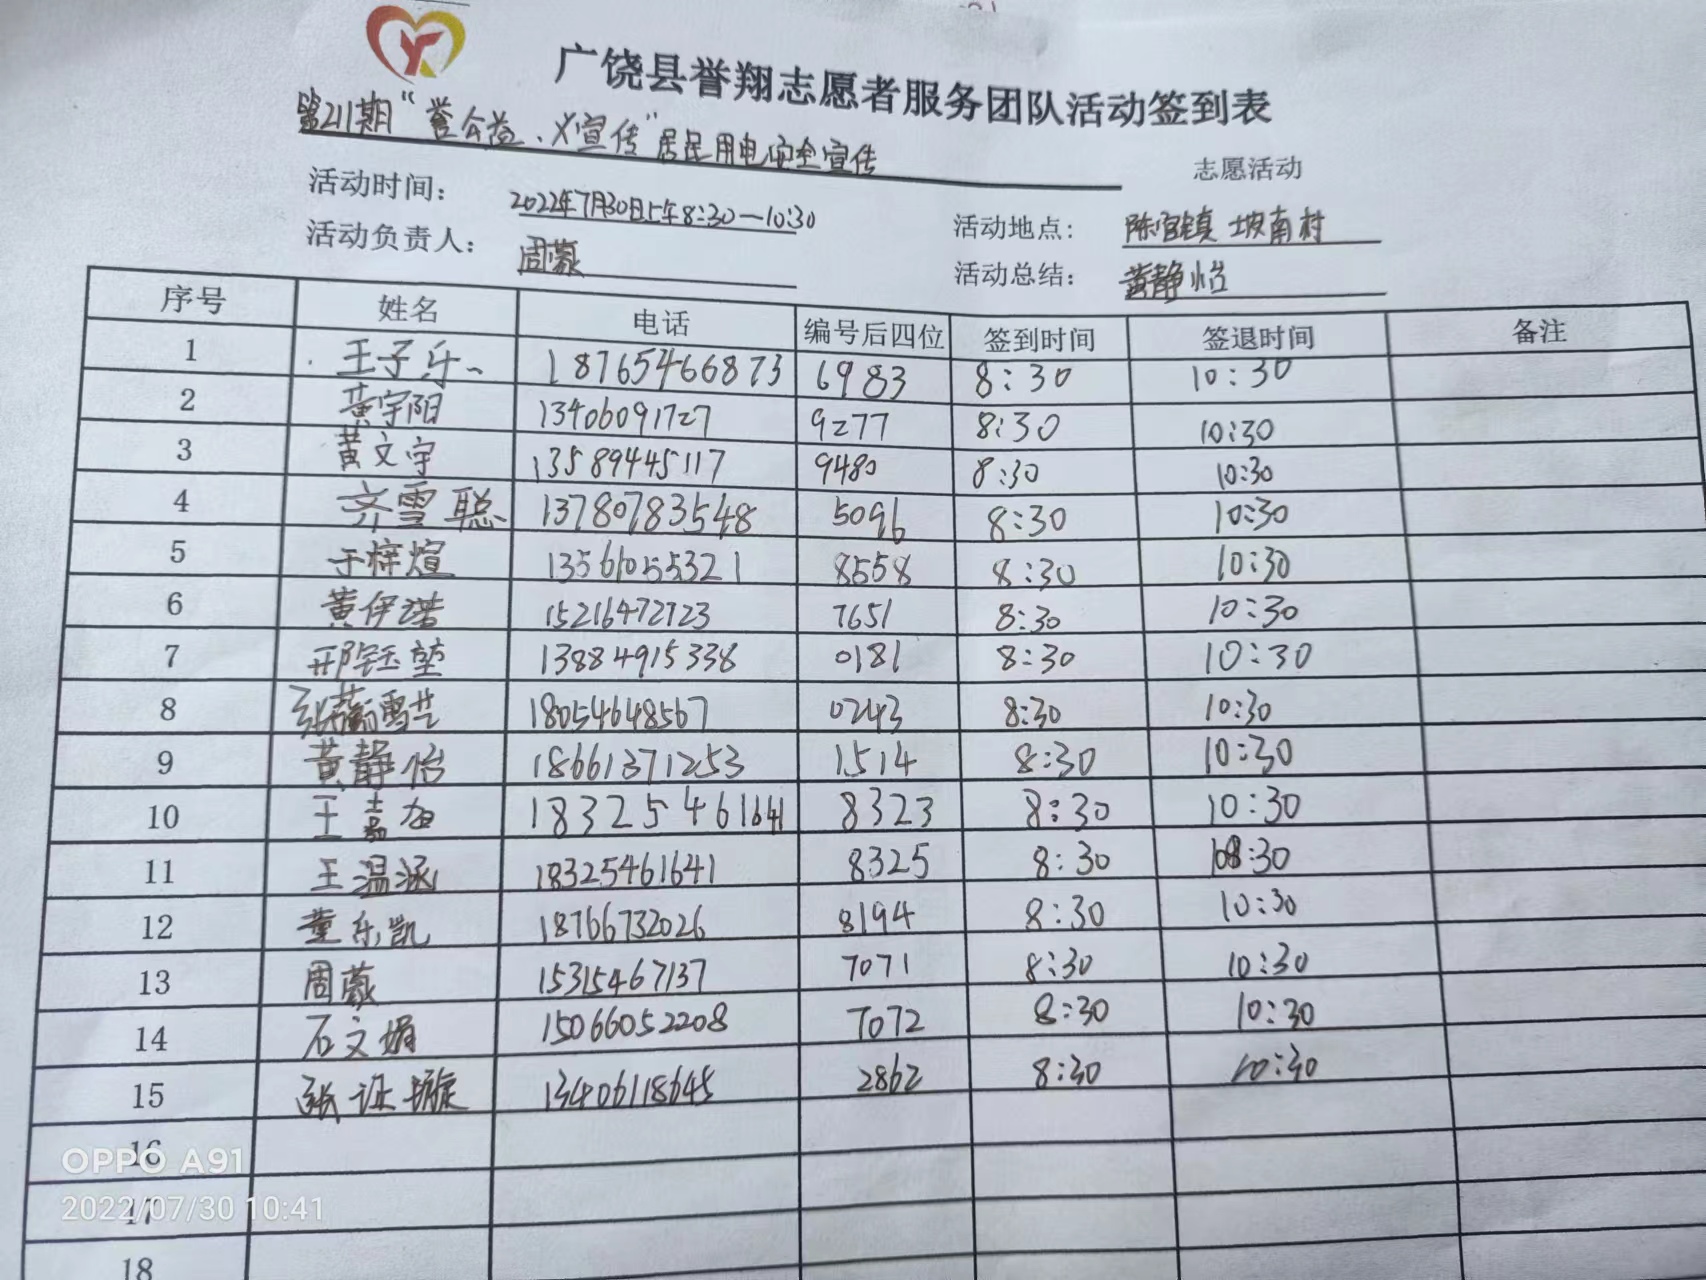 广饶县誉翔志愿者服务团队活动签到表
第211期“誉公益、义宣传”居民用电安全宣传 志愿活动
活动时间： 2022年7月30日上午8:30—10:30 活动地点： 陈官镇 坡南村
活动负责人： 周蒙 活动总结： 黄静怡
序号 姓名 电话 编号后四位 签到时间 签退时间 备注
1 王子乐 18765466873 6983 8:30 10:30
2 黄宇阳 13406091727 9277 8:30 10:30
3 黄文宇 13589445117 9480 8:30 10:30
4 齐雪聪 13780783548 5096 8:30 10:30
5 于梓煊 13561055321 8558 8:30 10:30
6 黄伊诺 15216472723 7651 8:30 10:30
7 邢钰堃 13884915338 0181 8:30 10:30
8 张 雪芝 18054648567 0243 8:30 10:30
9 黄静怡 18661371253 1514 8:30 10:30
10 王嘉 18325461641 8323 8:30 10:30
11 王温涵 18325461641 8325 8:30 10:30
12 董乐凯 18766732026 8194 8:30 10:30
13 周蒙 15315467137 7071 8:30 10:30
14 石文娟 15066052208 7072 8:30 10:30
15 张证璇 13406118645 2862 8:30 10:30
16
17
18
OPPO A91
2022/07/30 10:41